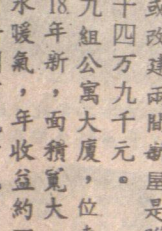 或改建兩間敝屋是
十四万九千元。
九組公寓大廈，位
18年新，面積寬大
水暖氣，年收益約